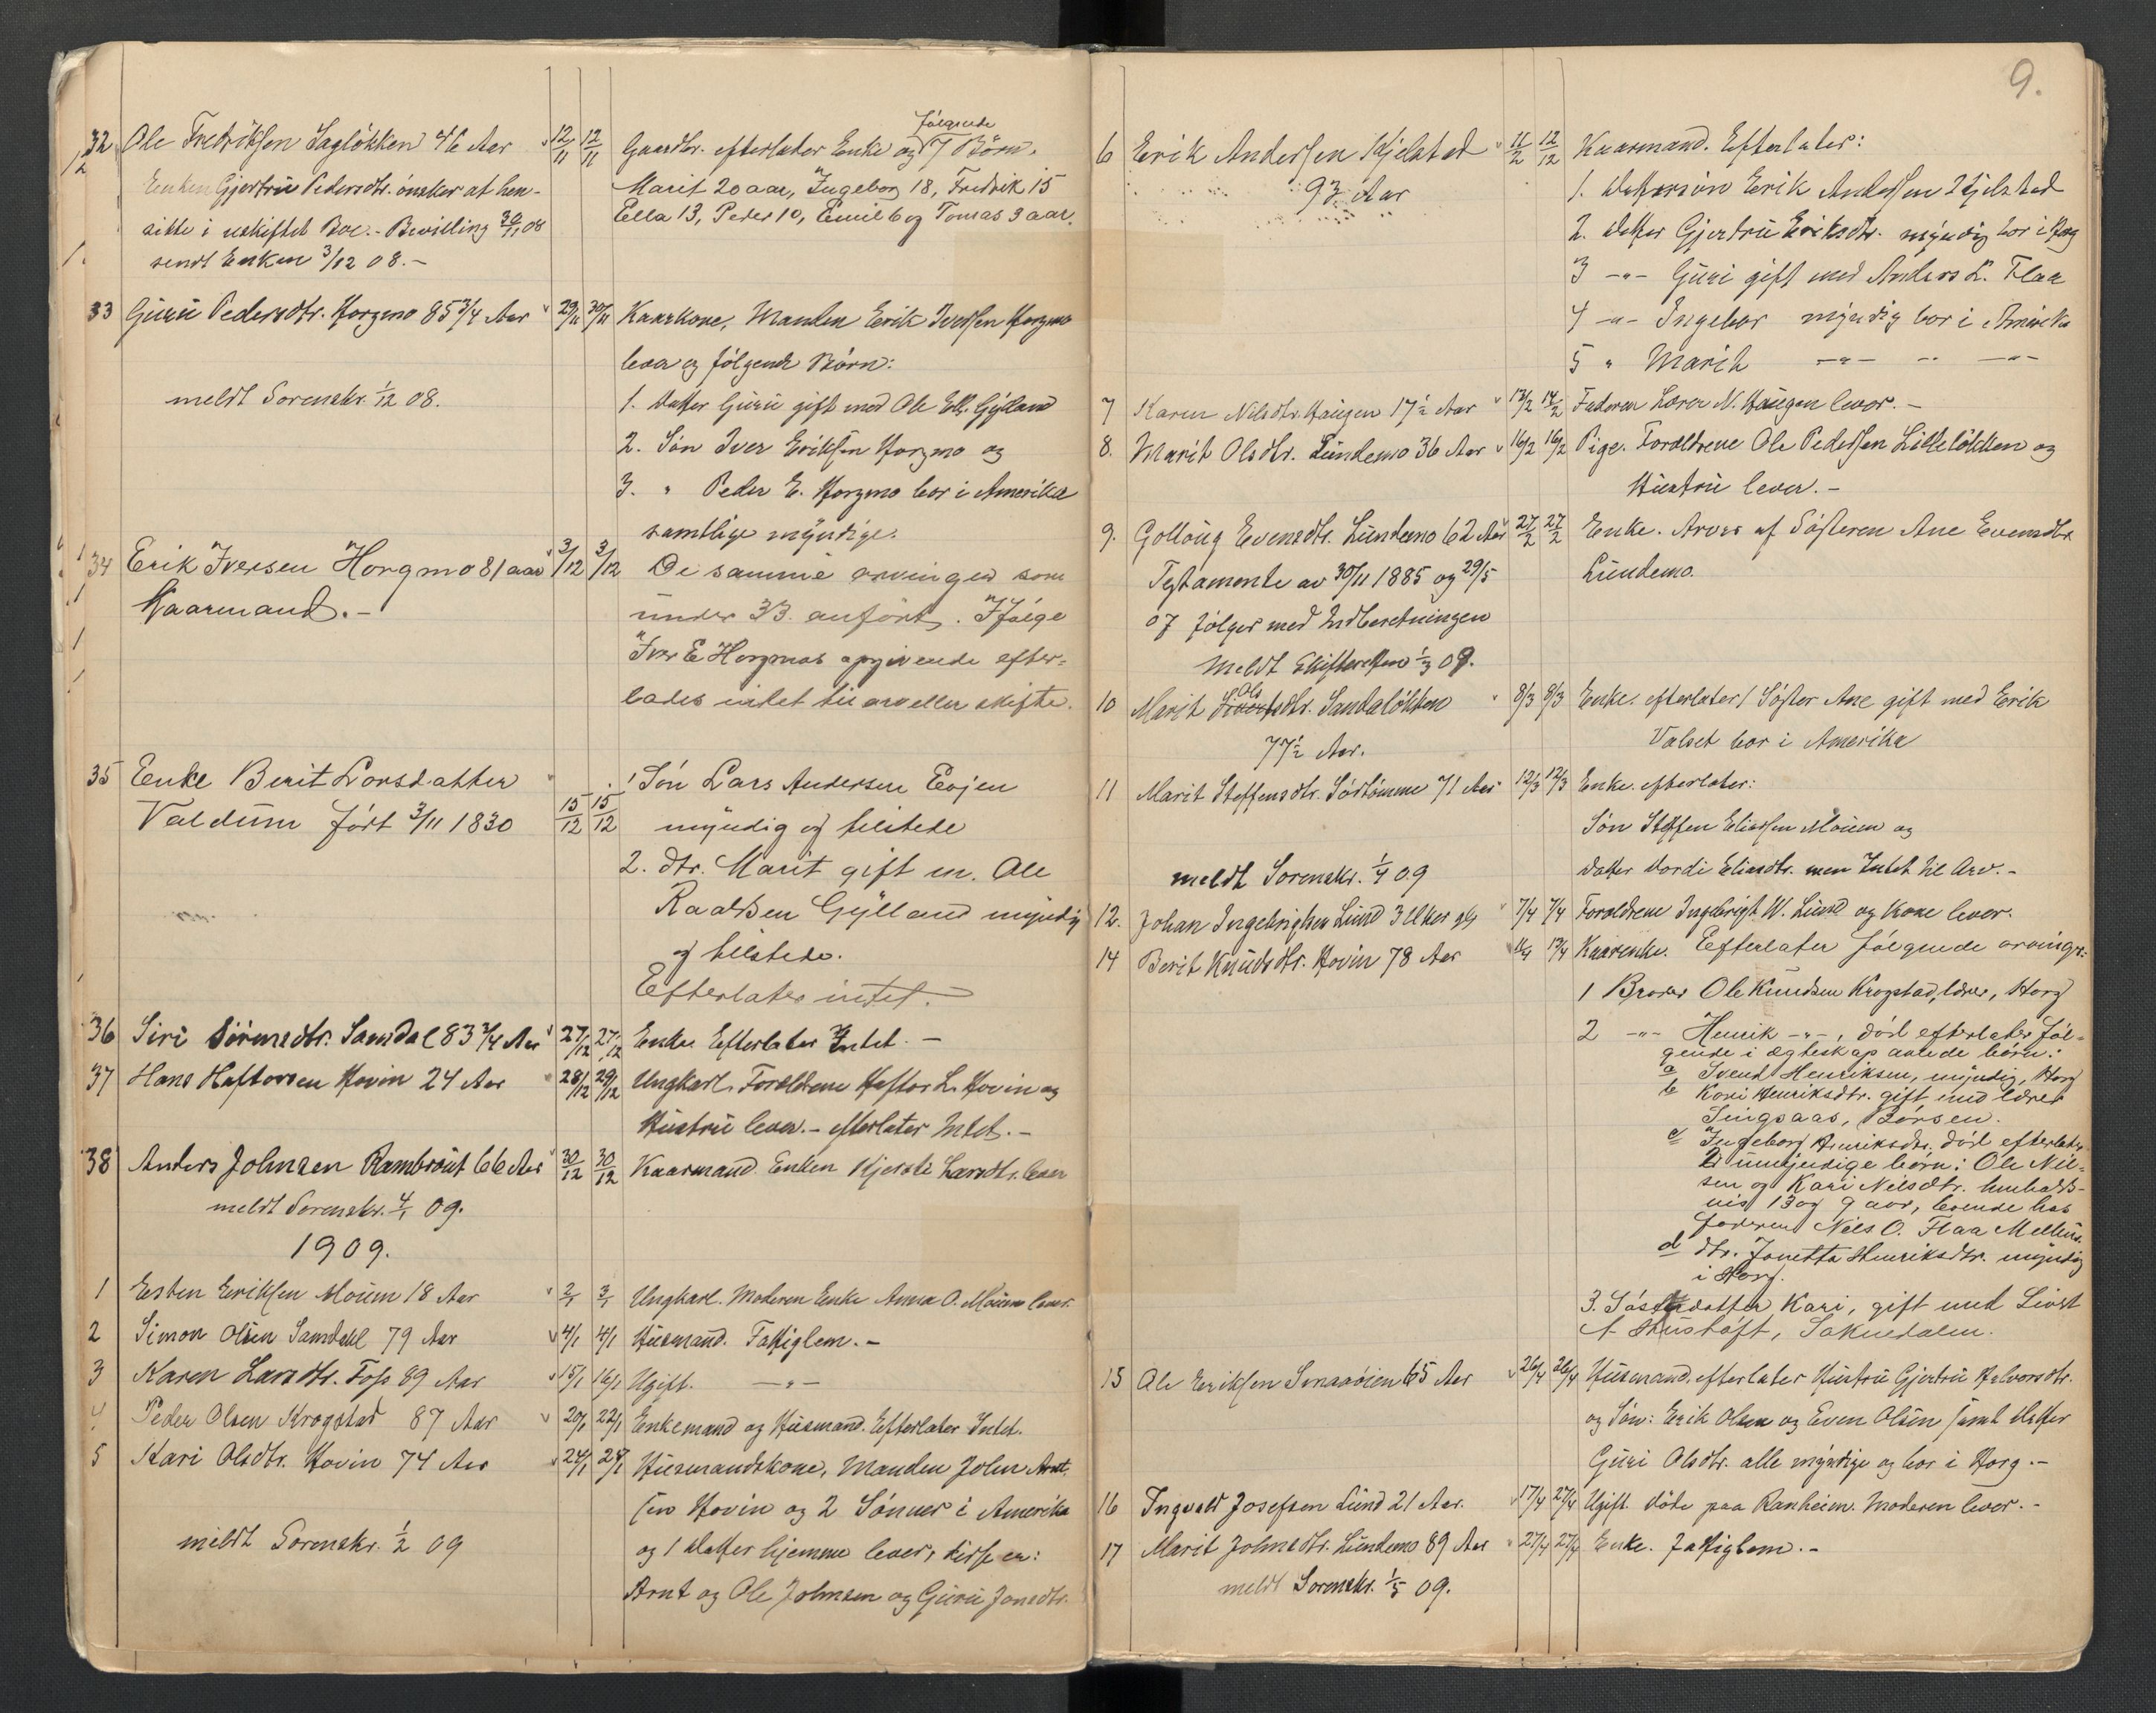 32 Ole Fredriksen Sagløkken 46 Aar 12/11 12/11 Gaardbr. efterlater Enke og følgende 7 Børn.
Enken Gjertrud Pedersdtr. ønsker at hen- Marit 20 aar, Ingeborg 18, Fredrik 15
sitte i uskiftet Bo. - Bevilling 30/11 08 Ella 13, Peder 10, Emil 6 og Tomas 3 aar.
sendt Enken 3/12 08. -
33 Guru Pedersdtr. Horgmo 85 3/4 Aar 29/11 30/11 Kaarkone, Manden Erik Iversen Horgmo
lever og følgende Børn:
meldt Sorenskr. 1/12 08. 1. Datter Guru gift med Ole Ell. Gylland
2. Søn Iver Eriksen Horgmo og
3. " Peder E. Horgmo bor i Amerika
samtlige myndige.
34 Erik Iversen Horgmo 81 aar 3/12 3/12 De samme arvinger som
Kaarmand. - under 33 anført. Ifølge
Iver E Horgmos opgivende efter-
lades intet til arv eller skifte.
35 Enke Berit Larsdatter 1 Søn Lars Andersen Evjen
Valdum født 3/11 1830 15/12 15/12 myndig og tilstede
2. dtr. Marit gift m. Ole
Gylland myndig
og tilstede.
Efterlater intet.
36 Siri Sørensdtr. Samdal 83 3/4 Aar 27/12 27/12 Enke Efterlater Intet. -
37 Hans Haftorsen Hovin 24 Aar 28/12 29/12 Ungkarl. Forældrene Haftor L. Hovin og
Hustru lever. - efterlater Intet. -
38 Anders Johnsen Rambraut 66 Aar 30/12 30/12 Kaarmand Enken Kjersti Larsdtr. lever
meldt Sorenskr. 4/1 09.
1909.
1 Esten Eriksen Moum 18 Aar 2/1 3/1 Ungkarl. Moderen Enke Anna O. Moum lever.
2 Simon Olsen Samdahl 79 Aar 4/1 4/1 Husmand. Fattiglem. -
3 Karen Larsdtr. Foss 89 Aar 15/1 16/1 Ugift. -"-
4 Peder Olsen Krogstad 87 Aar 20/1 22/1 Enkemand og Husmand. Efterlater Intet.
5 Kari Olsdtr. Hovin 74 Aar 24/1 24/1 Husmandskone, Manden John Arnt-
sen Hovin og 2 Sønner i Amerika
meldt Sorenskr. 1/2 09 og 1 Datter hjemme lever, disse er:
Arnt og Ole Johnsen og Guru Jonsdtr.
9.
6 Erik Andersen Kjelstad 11/2 12/12 Kaarmand. Efterlater:
93 Aar 1. Dattersøn Erik Andersen Kjelstad
2. Datter Gjertru Eriksdtr. myndig bor i Horg
3 -"- Guri gift med Anders L. Flaa
4 -"- Ingebor myndig bor i Amerika
5 " Marit -"- -"- -"-
7 Karen Nilsdtr. Haugen 17 1/2 Aar 13/2 14/2 Faderen Lærer N. Haugen lever. -
8. Marit Olsdtr. Lundemo 36 Aar 16/2 16/2 Pige. Forældrene Ole Pedersen Lilleløkken og
Hustru lever. -
9. Gollaug Evensdtr. Lundemo 62 Aar 27/2 27/2 Enke. Arves af Søsteren Ane Evensdtr.
Testamente av 30/11 1885 og 29/5 Lundemo.
07 følger med Indberetningen
Meldt Skifteretten 1/3 09.
10 Marit Olsdtr. Sandaløkken 8/3 8/3 Enke. efterlater 1 Søster Ane gift med Erik
77 1/2 Aar. Valset bor i Amerika
11 Marit Steffensdtr. Sørtømme 71 Aar 12/3 12/3 Enke. efterlater:
Søn Steffen Eliassen Moum og
meldt Sorenskr. 1/4 09 Datter Dordi Eliasdtr. men Intet til Arv. -
12. Johan Ingebrigtsen Lund 3 Uker gl 7/4 7/4 Forældrene Ingebrigt W. Lund og Kone lever.
14 Berit Knudsdtr. Hovin 78 Aar 11/4 13/4 Kaarenke. Efterlater følgende arvinger:
1 Broder Ole Knudsen Krogstad, lærer, Horg
2 -"- Henrik -"-, død efterlater føl-
gende i ægteskap avlede børn:
a Svend Henriksen, myndig, Horg
b Kari Henriksdtr. gift med lærer
Singsaas, Børsen.
c Ingeborg Henriksdtr. død efterlater
2 umyndige børn: Ole Nil-
sen og Kari Nilsdtr. henholds-
vis 13 og 9 aar, boende hos
faderen Nils O. Flaa Melhus.
d dtr. Jonetta Henriksdtr. myndig
i Horg.
3. Søsterdatter Kari, gift med Sivert
A. Hushøft, Soknedalen.
15 Ole Eriksen Smaaøien 65 Aar 26/4 26/4 Husmand. efterlater Hustru Gjertru Halvorsdtr.
og Søn: Erik Olsen og Even Olsen samt Datter
Guri Olsdtr. alle myndige og bor i Horg. -
16 Ingvald Josefsen Lund 21 Aar. 17/4 27/4 Ugift. døde paa Ranheim. Moderen lever. -
17 Marit Johnsdtr. Lundemo 89 Aar 27/4 27/4 Enke. Fattiglem. -
meldt Sorenskr. 1/5 09.